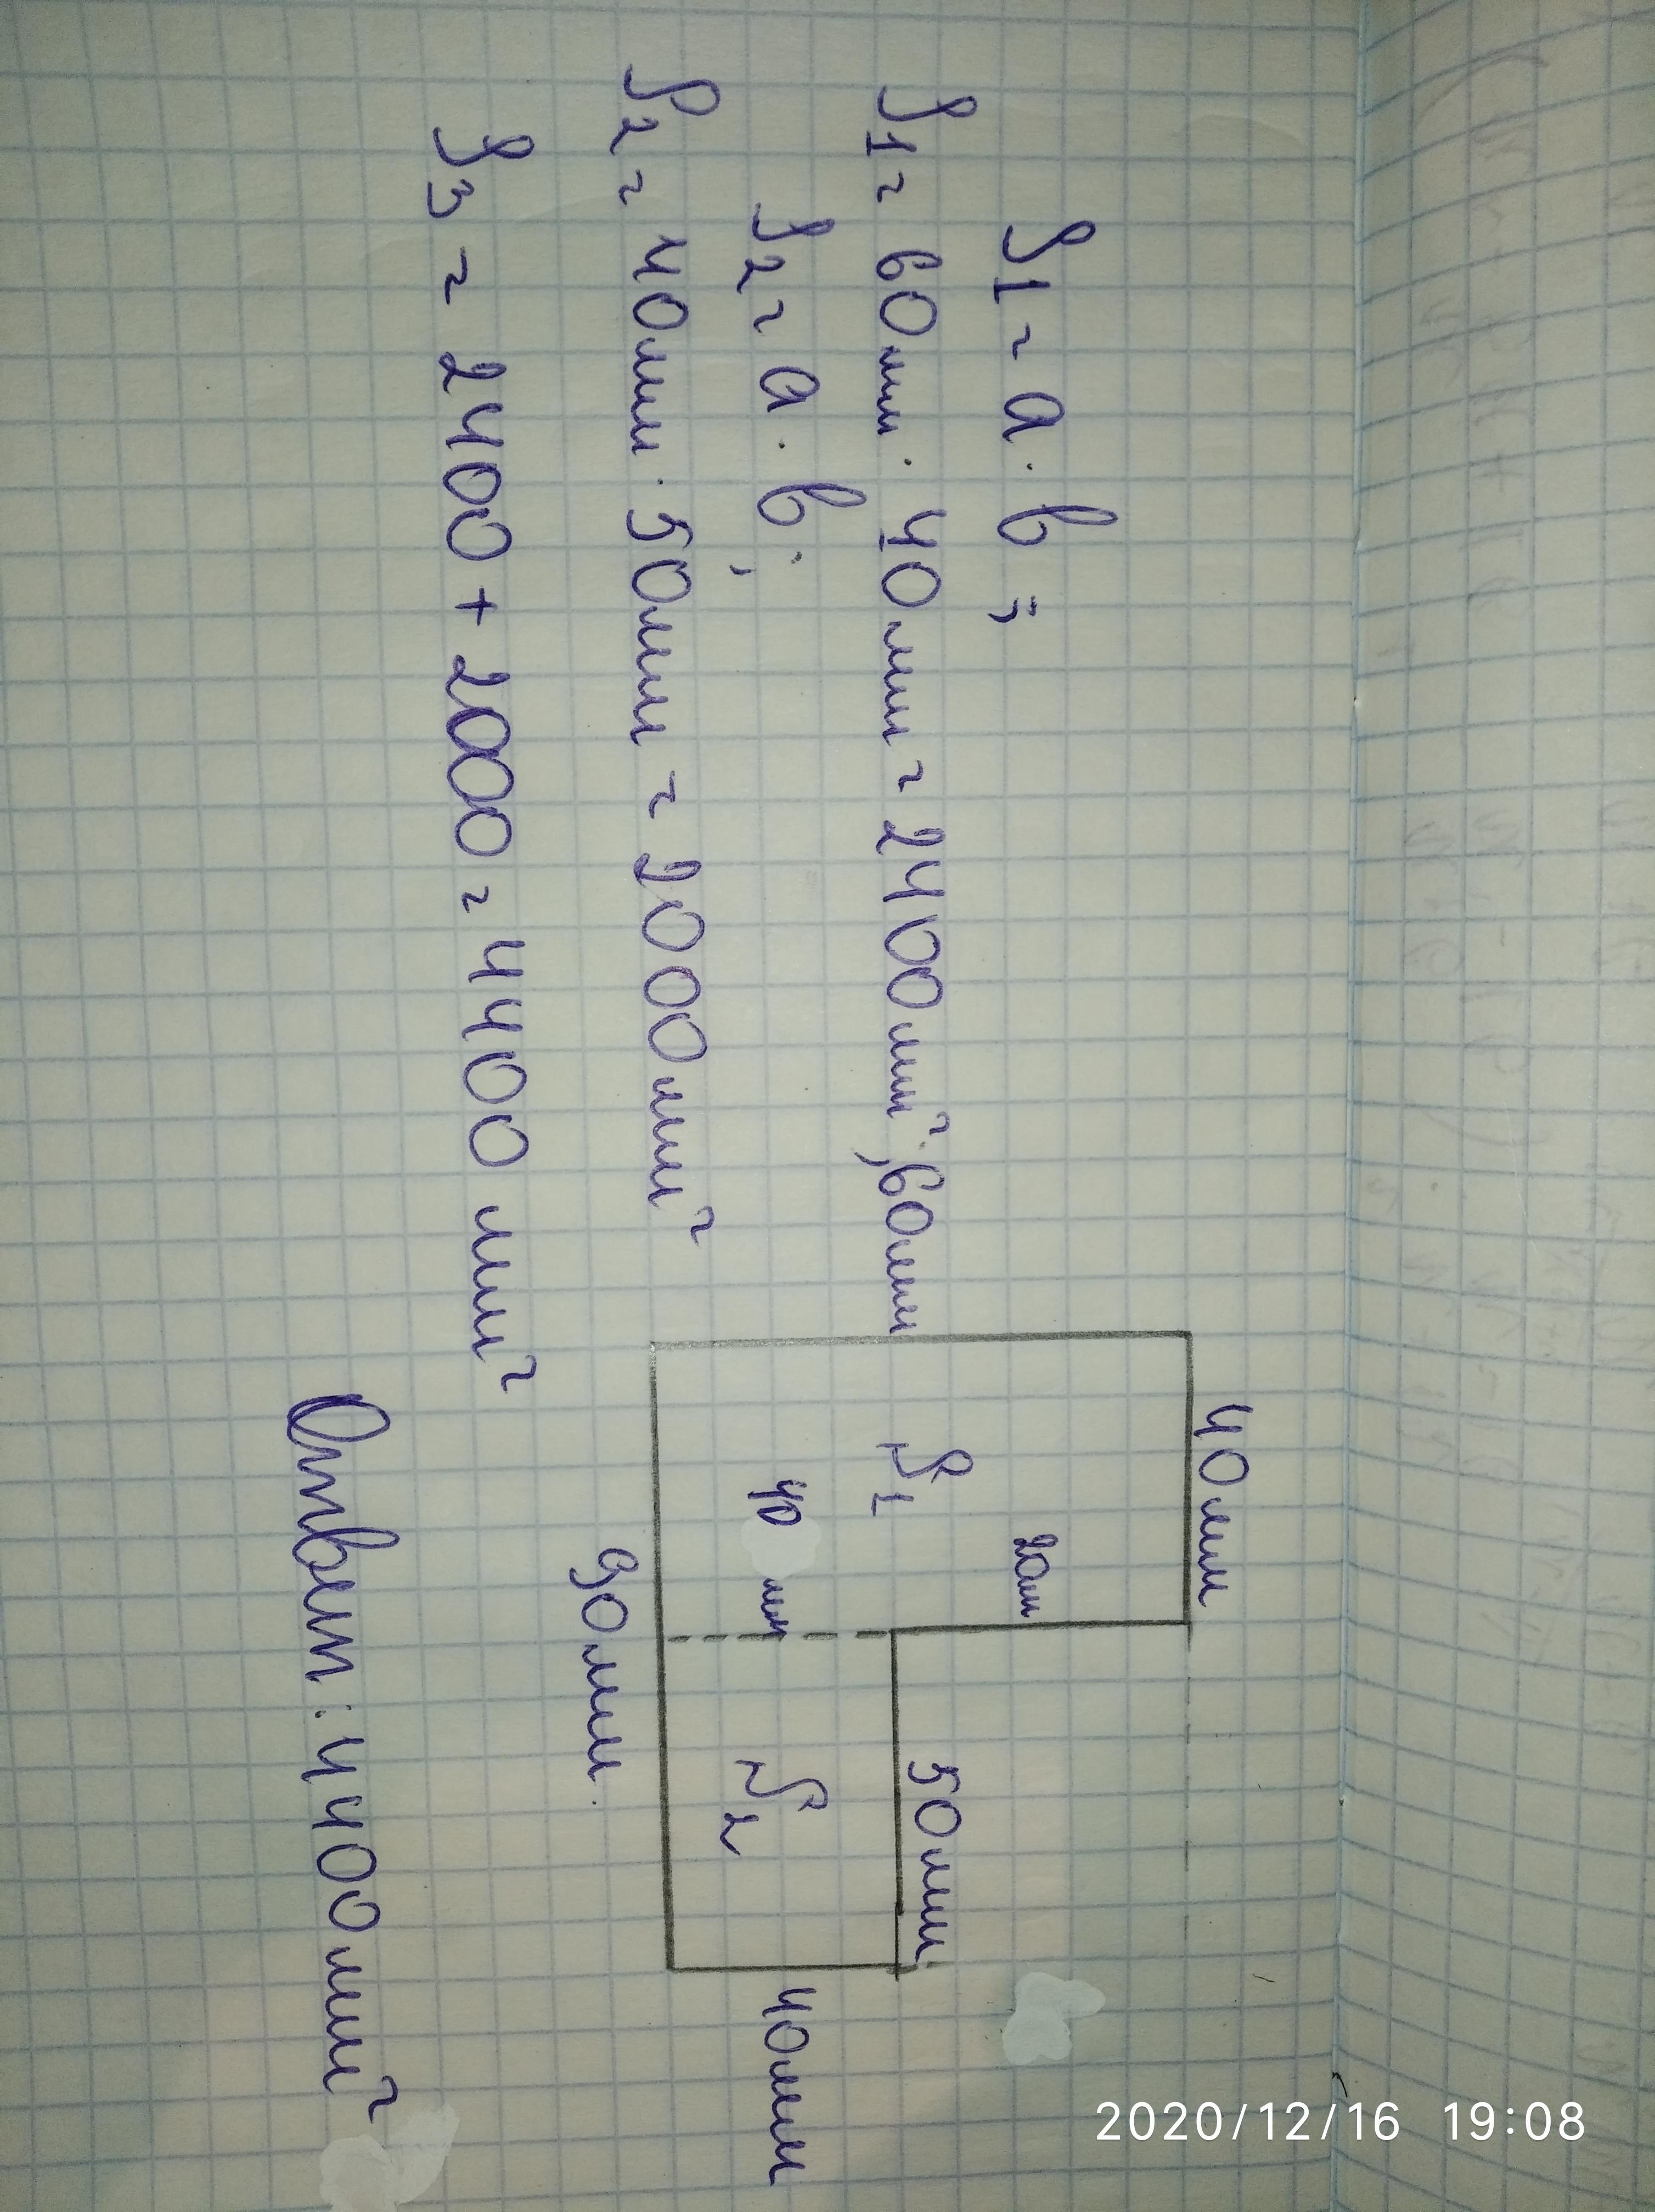 S₁ = a · b ;
S₁ = 60мм · 40мм = 2400мм² ; 60мм
S₂ = a · b ;
S₂ = 40мм · 50мм = 2000мм²
S₃ = 2400 + 2000 = 4400 мм²
40мм
20мм
S₁
50мм
40 мм
S₂
40мм
90мм.
Ответ: 4400мм²
2020/12/16 19:08